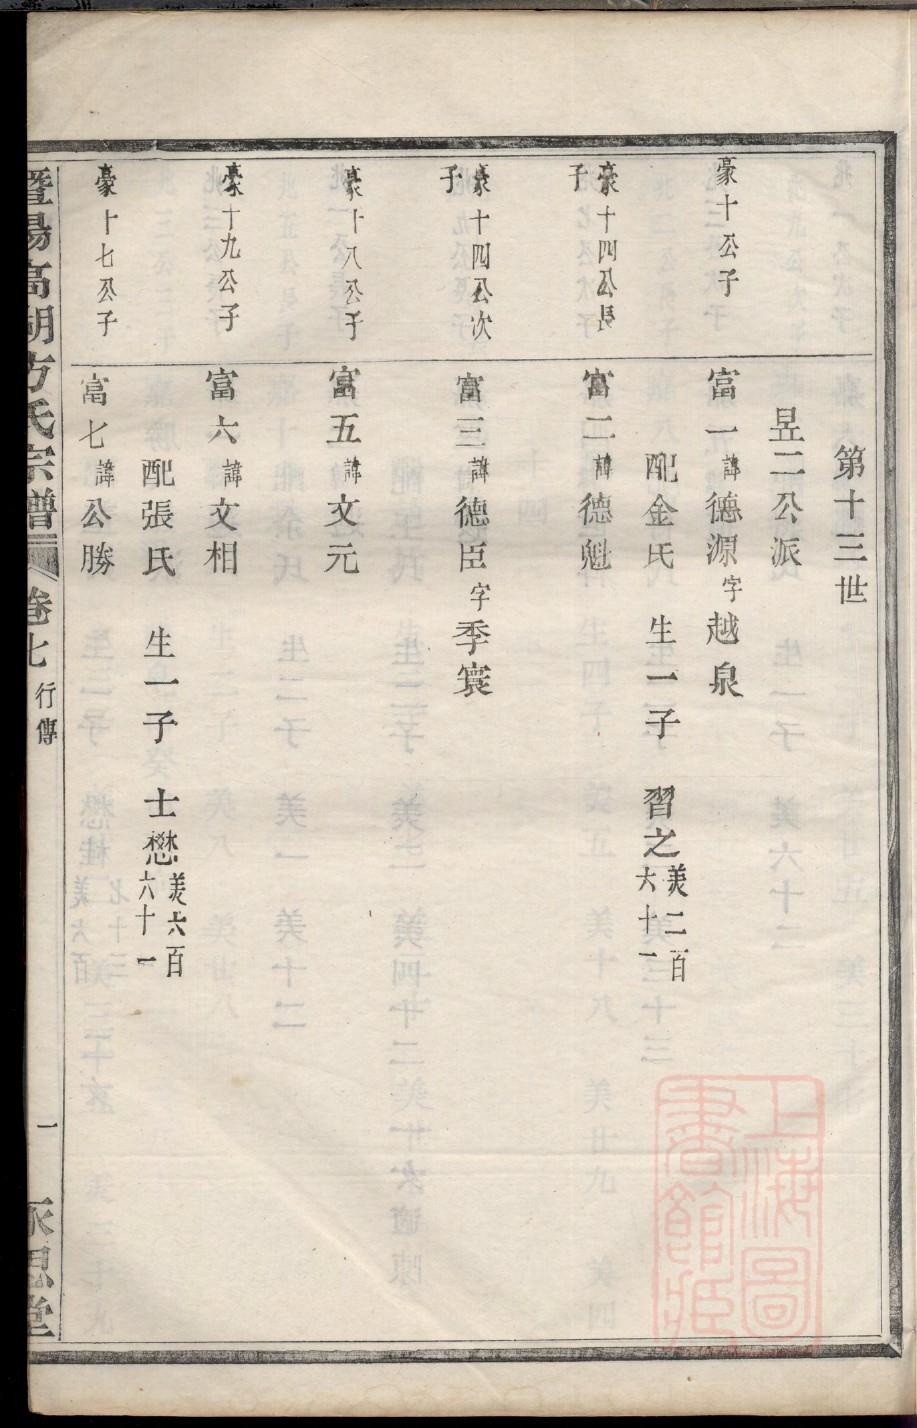 第十三世
昱二公派
豪十公子
富一諱德源字越泉
配金氏　生一子　習之美二百六十一
豪十四公長子
富二諱德魁
豪十四公次子
富三諱德臣字季寰
豪十八公子
富五諱文元
豪十九公子
富六諱文相
配張氏　生一子　士懋美六百六十一
豪十七公子
富七諱公勝
暨陽高湖方氏宗譜　卷七　行傳　一　永思堂
上海圖書館藏